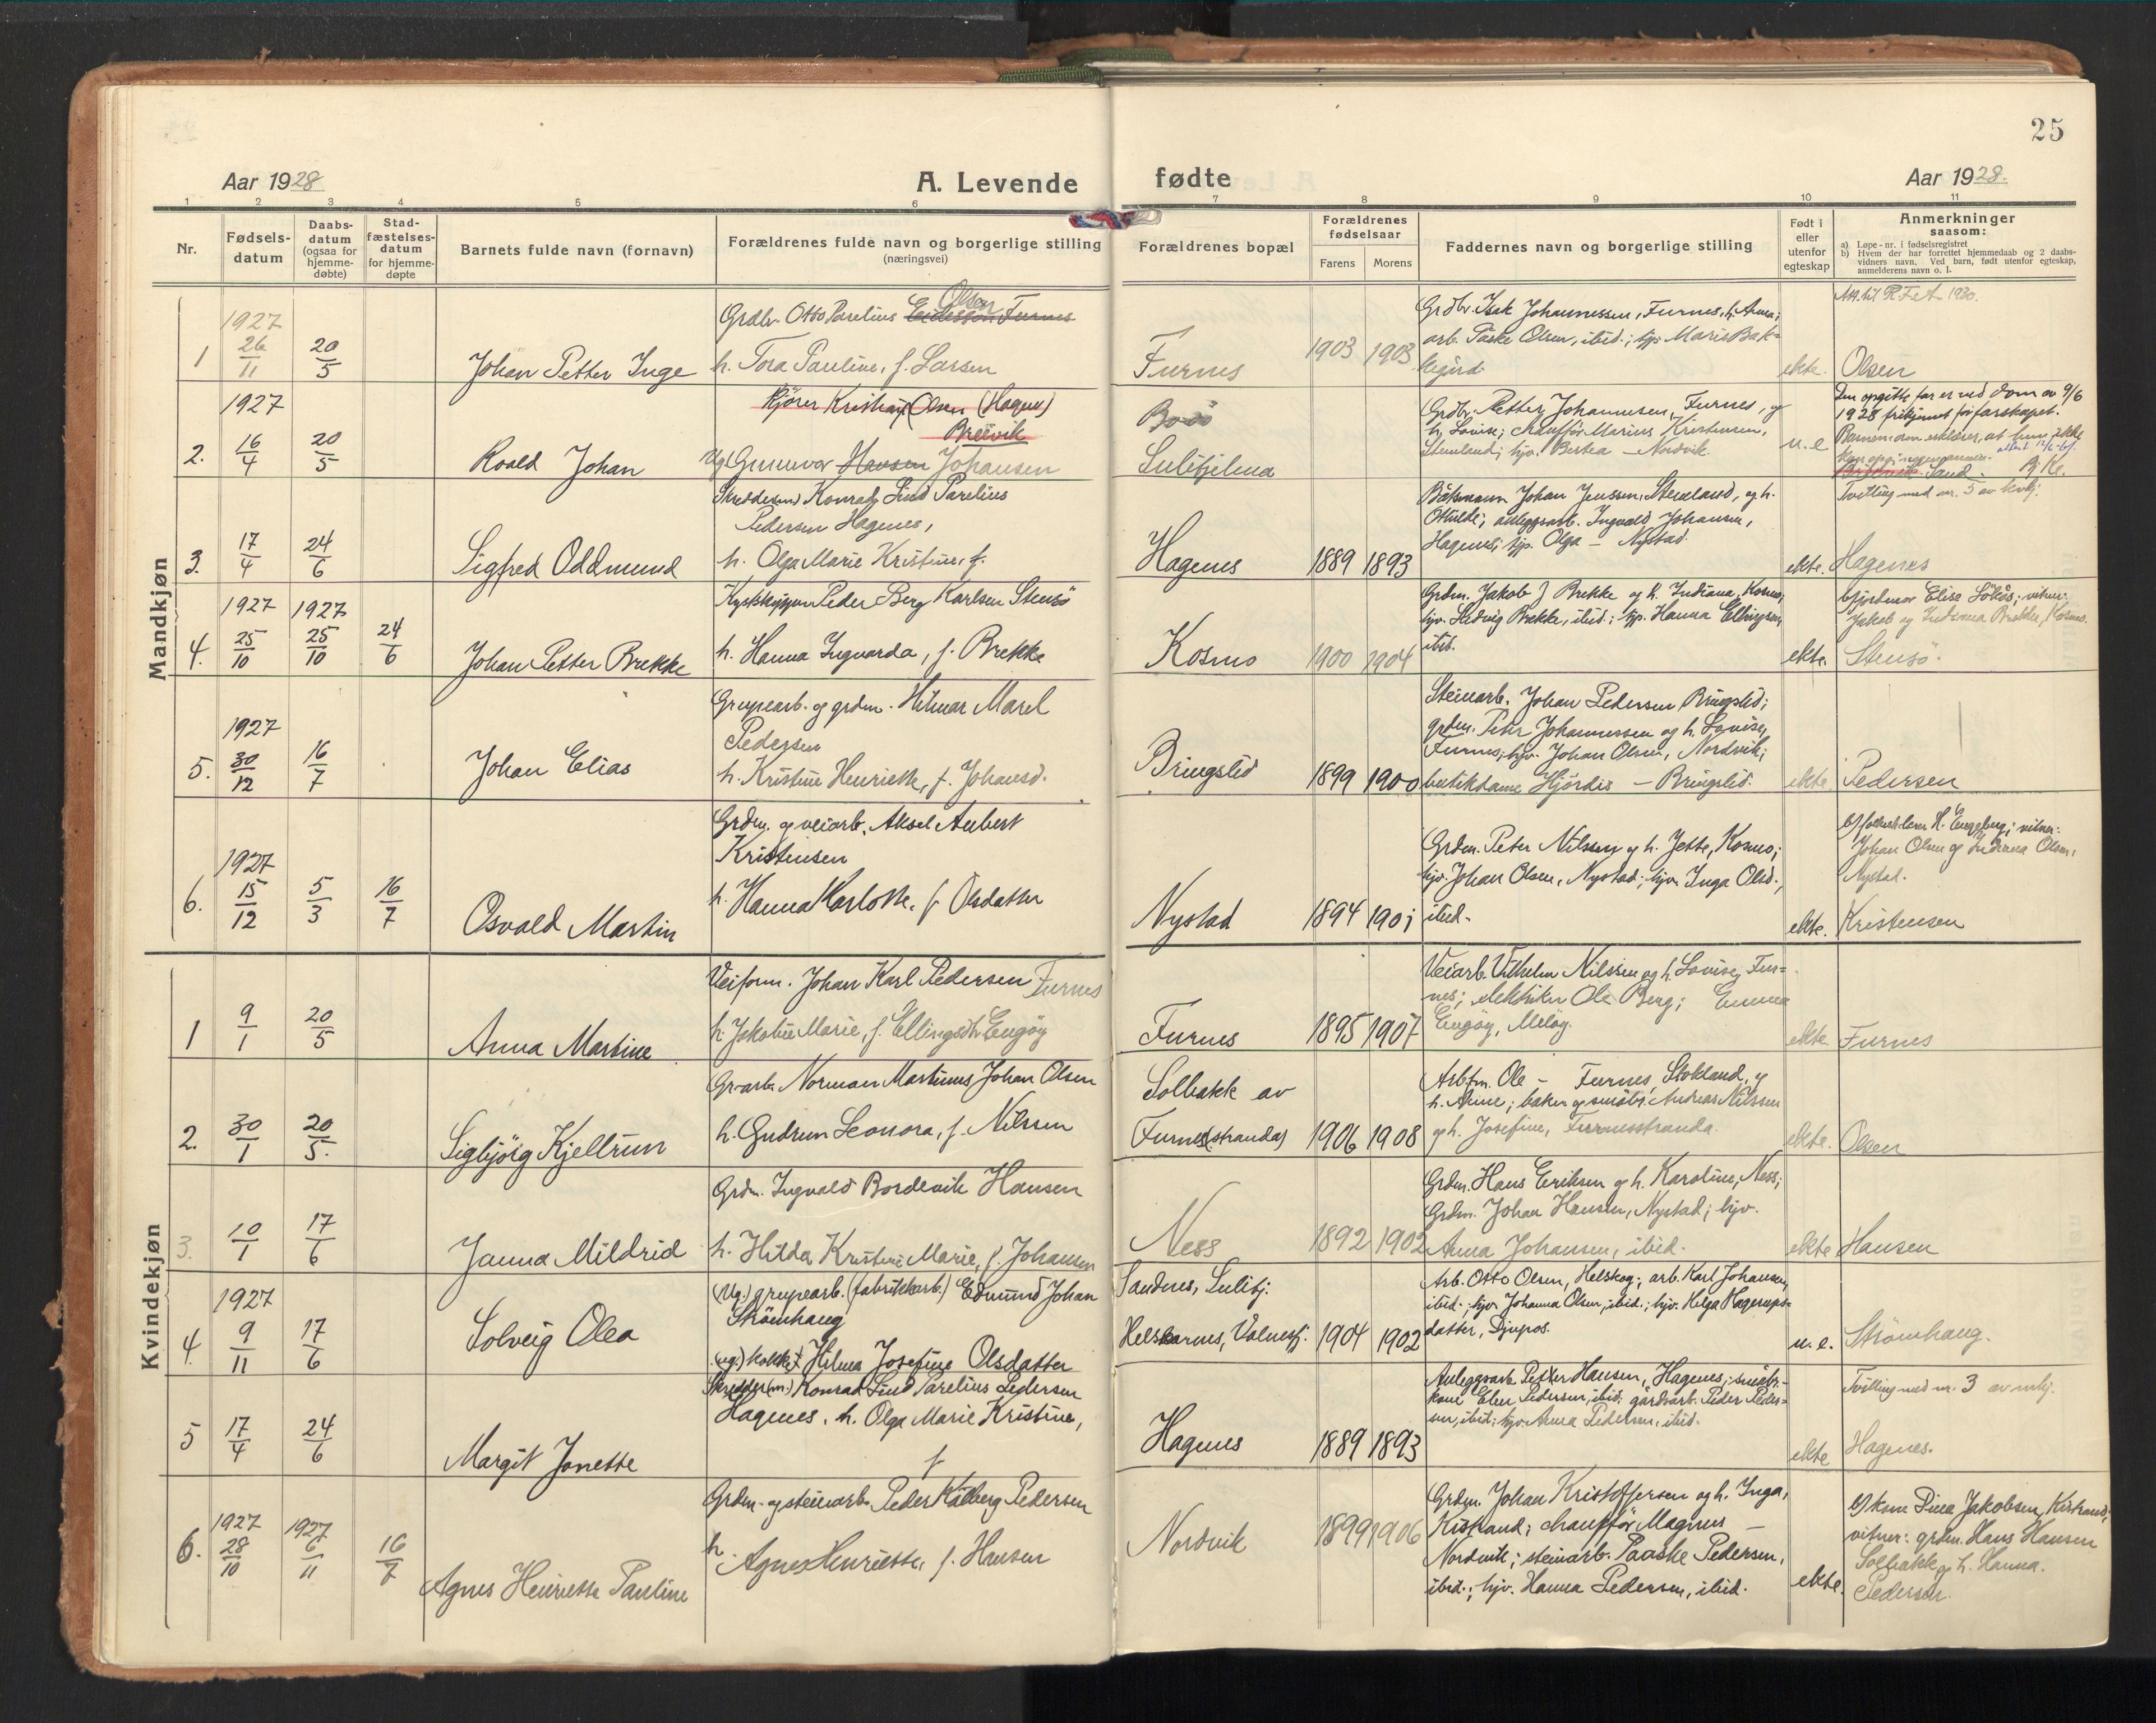 25
Aar 1928
A. Levende
fødte
Aar 1928.
1 2 3 4 5 6 7 8 9 10 11
Nr.
Fødsels-
datum
Daabs-
datum
(ogsaa for
hjemme-
døbte)
Stad-
fæstelses-
datum
for hjemme-
døpte
Barnets fulde navn (fornavn)
Forældrenes fulde navn og borgerlige stilling
(næringsvei)
Forældrenes bopæl
Forældrenes
fødselsaar
Farens Morens
Faddernes navn og borgerlige stilling
Født i
eller
utenfor
egteskap
Anmerkninger
saasom:
a) Løpe-nr. i fødselsregistret
b) Hvem der har forrettet hjemmedaab og 2 daabs-
vidners navn. Ved barn, født utenfor egteskap,
anmelderens navn o. l.
Mandkjøn
1
1927
26/11
20/5
Johan Petter Inge
Olsen
Grdbr. Otto Parelius Furnes
h. Tora Pauline, f. Larsen
Furnes
1903 1903
Grdbr. Isak Johannessen, Furnes, h. Anna;
arb. Paske Olsen, ibid.; tjp. Marie Bak-
kejord.
ekte.
Att. til R.F.et 1930.
Olsen
2.
1927
16/4
20/5
Roald Johan
Kjører Kristian Olsen (Hagen)
Breivik
Ug. Gunnvor Hansen Johansen
Bodö
Sulitjelma
Grdbr. Petter Johannesen, Furnes, og
h. Lovise; chauffør Marius Kristensen,
Stemland; hjv. Bertea — Nordvik.
u. e
Den opgitte far er ved dom av 9/6
1928 frikjennt for farskapet.
Barnemoren erklærer, at hun ikke
Sand.
3.
17/4
24/6
Sigfred Oddmund
Skredder(m) Konrad Lind Parelius
Pedersen Hagenes,
h. Olga Marie Kristine, f.
Hagenes
1889 1893
Båtsmann Johan Jenssen, Stemland, og h.
Othilde; anleggsarb. Ingvald Johansen,
Hagenes; tjp. Olga — Nystad
ekte.
Tvilling med nr. 5 av kvkj.
Hagenes
4.
1927
25/10
1927
25/10
24/6
Johan Petter Brekke
Kystskipper Peder Berg Karlsen Stensö
h. Hanna Ingvarda, f. Brekke
Kosmo
1900 1904
Grdm. Jakob J Brekke og h. Indiana, Kosmo;
hjv. Hedvig Brekke, ibid.; tjp. Hanna Ellingsen,
ibid.
ekte.
b/ jordmor Elise Lökås; vitner:
Jakob og Indiana Brekke, Kosmo.
Stensö.
5.
1927
30/12
16/7
Johan Elias
Grupearb. og grdm. Hilmar Marel
Pedersen
h. Kristine Henriette, f. Johansd.
Bringslid
1899 1900
Steinarb. Johan Pedersen Bringslid;
grdm. Peter Johannessen og h. Lovise,
Furnes; hjv. Johan Olsen, Nordvik;
butikdame Hjördis — Bringslid.
ekte
Pedersen
6.
1927
15/12
5/3
16/7
Osvald Martin
Grdm. og veiarb. Aksel Aubert
Kristensen
h. Hanna Karlotte, f. Olsdatter
Nystad
1894 1901
Grdm. Peter Nilssen og h. Jette, Kosmo;
hjv. Johan Olsen, Nystad; hjv. Inga Olsd.,
ibid.
ekte.
b/ folkesk.lærer H. Engeberg; vitner:
Johan Olsen og Indiana Olsen,
Nystad.
Kristensen
Kvindekjøn
1
9/1
20/5
Anna Martine
Veiform. Johan Karl Pedersen Furnes
h. Jakobine Marie, f. Ellingsdtr. Engöy
Furnes
1895 1907
Veiarb. Vilhelm Nilssen og h. Lovise, Fur-
nes; elektriker Ole Berg; Emma
Engöy, Melöy.
ekte.
Furnes
2.
30/1
20/5.
Sigbjörg Kjellrun
Gr.arb. Norman Martinus Johan Olsen
h. Gudrun Leonora, f. Nilssen
Solbakk av
Furnes(stranda)
1906 1908
Arbfm. Ole — Furnes, Stokland, og
h. Anne; baker og småbr. Andreas Nilssen
og h. Josefine, Furnesstranda.
ekte.
Olsen
3.
10/1
17/6
Janna Mildrid
Grdm. Ingvald Bordevik Hansen
h. Hilda Kristine Marie, f. Johansen
Ness
1892 1902
Grdm. Hans Eriksen og h. Karoline, Ness;
Grdm. Johan Hansen, Nystad; hjv.
Anna Johansen, ibid.
ekte
Hansen
4.
1927
9/11
17/6
Solveig Olea
(Ug.) grupearb. (fabrikkarb.) Edmund Johan
Strömhaug
(ug.) kokke Hilma Josefine Olsdatter
Sandnes, Sulitj.
Helskarnes, Valnesfj.
1904 1902
Arb. Otto Olsen, Helskog; arb. Karl Johansen,
ibid.; hjv. Johanna Olsen, ibid.; hjv. Helga Hagerups-
datter, Djupos.
u. e.
Strömhaug.
5
17/4
24/6
Margit Jonette
Skredder(m.) Konrad Lind Parelius Pedersen
Hagenes, h. Olga Marie Kristine,
f.
Hagenes
1889 1893
Anleggsarb. Petter Hansen, Hagenes; småbr.-
kone Elen Pedersen, ibid; gårdsarb. Peder Peder-
sen, ibid; hjv. Anna Pedersen, ibid.
ekte
Tvilling med nr. 3 av mkj.
Hagenes.
6.
1927
28/10
1927
6/11
16/7
Agnes Henriette Pauline
Grdm. og steinarb. Peder Kålberg Pedersen
h. Agnes Henriette, f. Hansen
Nordvik
1899 1906
Grdm. Johan Kristoffersen og h. Inga,
Kistrand; chauffør Magnus —
Nordvik; steinarb. Paaske Pedersen,
ibid.; hjv. Hanna Pedersen, ibid.
ekte.
b/ kone Dina Jakobsen, Kistrand;
vitner: grdm. Hans Hansen
Solbakk og h. Hanna.
Pedersen.